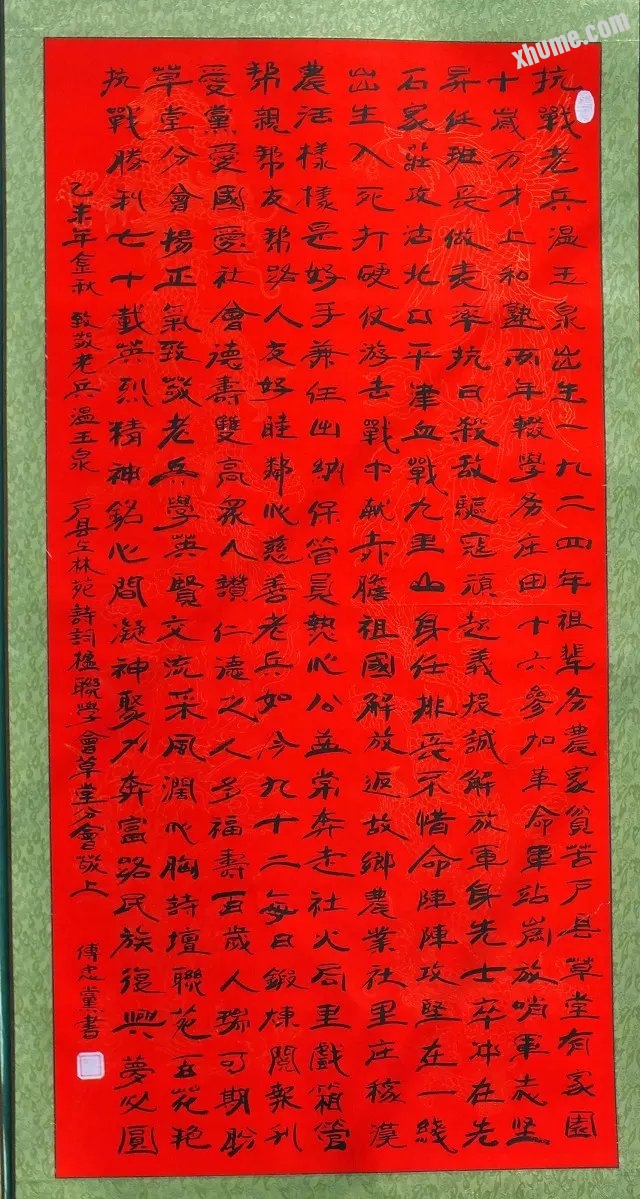 xhume.com
抗戰老兵溫玉泉出生一九二四年祖輩务農家貧苦户县草堂有家園
十歲方才上私塾两年輟學务庄田十六參加革命軍站崗放哨軍志坚
昇任班長做表率抗日殺敵驅寇頑起義投誠解放軍身先士卒冲在先
石家莊攻沽北口平津血戰九里山身任排長不惜命陣陣攻堅在一綫
出生入死打硬仗游击戰中献赤膽祖國解放返故鄉農業社里庄稼漢
農活樣樣是好手兼任出納保管員熱心公益常奔走社火局里戲箱管
帮親帮友帮路人友好睦鄰心慈善老兵如今九十二每日鍛煉閱報刊
愛黨愛國愛社會德壽雙高眾人讚仁德之人多福壽百歲人瑞可期盼
草堂分會揚正氣致敬老兵學英賢交流采風潤心胸詩壇聯苑百花艳
抗戰勝利七十載英烈精神銘心間凝神聚力奔富路民族復興夢必圓
乙未年金秋 致敬老兵溫玉泉 户县上林苑詩詞楹聯學會草堂分會敬上 傅忠黨書